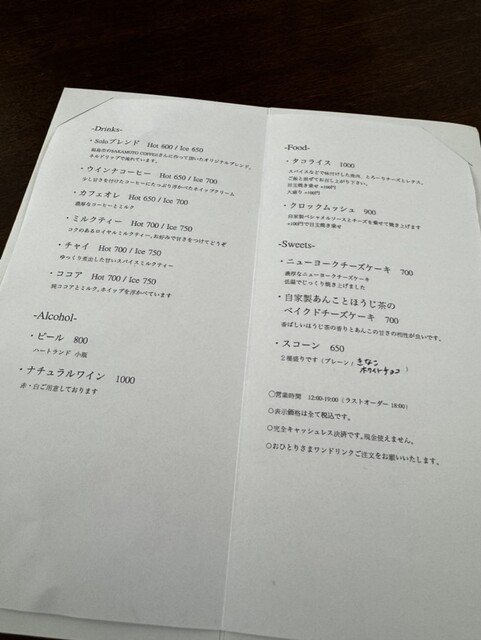 -Drinks-
・Soloブレンド Hot 600 / Ice 650
ネルドリップで淹れています。
・ウインナコーヒー Hot 650 / Ice 700
少し甘さを付けたコーヒーにたっぷり浮かべたホイップクリーム
・カフェオレ Hot 650 / Ice 700
濃厚なコーヒーとミルク
・ミルクティー Hot 700 / Ice 750
コクのあるロイヤルミルクティー。お好みで甘さをつけてどうぞ
・チャイ Hot 700 / Ice 750
ゆっくり煮出した甘いスパイスミルクティー
・ココア Hot 700 / Ice 750
純ココアとミルク、ホイップを浮かべています
-Alcohol-
・ビール 800
ハートランド 小瓶
・ナチュラルワイン 1000
赤・白ご用意しております
-Food-
・タコライス 1000
スパイスなどで味付けした挽肉、とろーりチーズとレタス。
ご飯と混ぜてお召し上がり下さい。
目玉焼き乗せ +100円
大盛り +100円
・クロックムッシュ 900
自家製ベシャメルソースとチーズを乗せて焼き上げます
+100円で目玉焼き乗せ
-Sweets-
・ニューヨークチーズケーキ 700
濃厚なニューヨークチーズケーキ
低温でじっくり焼き上げました
・自家製あんことほうじ茶の
ベイクドチーズケーキ 700
香ばしいほうじ茶の香りとあんこの甘さの相性が良いです。
・スコーン 650
2種盛りです（プレーン／きなこ
ホワイトチョコ）
〇営業時間 12:00-19:00（ラストオーダー 18:00）
〇表示価格は全て税込です。
〇完全キャッシュレス決済です。現金使えません。
〇おひとりさまワンドリンクご注文をお願いいたします。